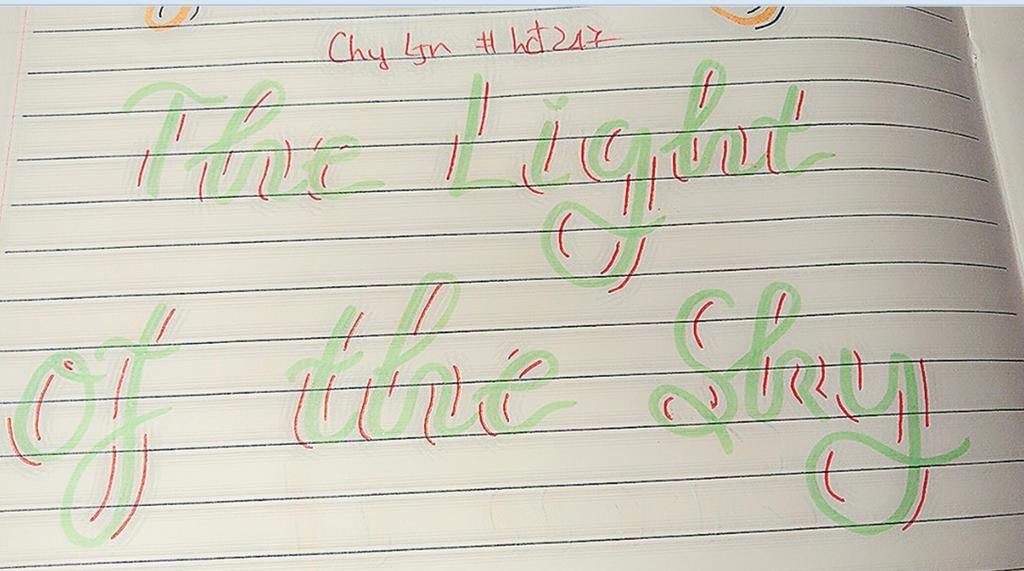 Chy Lyn # hct247
The Light
Of the Sky